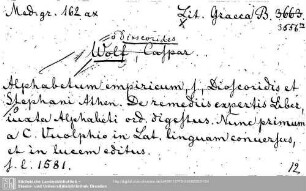 Med. gr. 162 ax Lit. Graeca B. 3663.
3556 m
Dioscorides
Wolf, Caspar
Alphabetum empiricum, s. Dioscoridis et
Stephani Athen. De remediis expertis Liber,
iuxta Alphabeti od. digestus. Nunc primum
a C. Wolphio in Lat. linguam conversus,
et in lucem editus.
s. l. 1581. 12